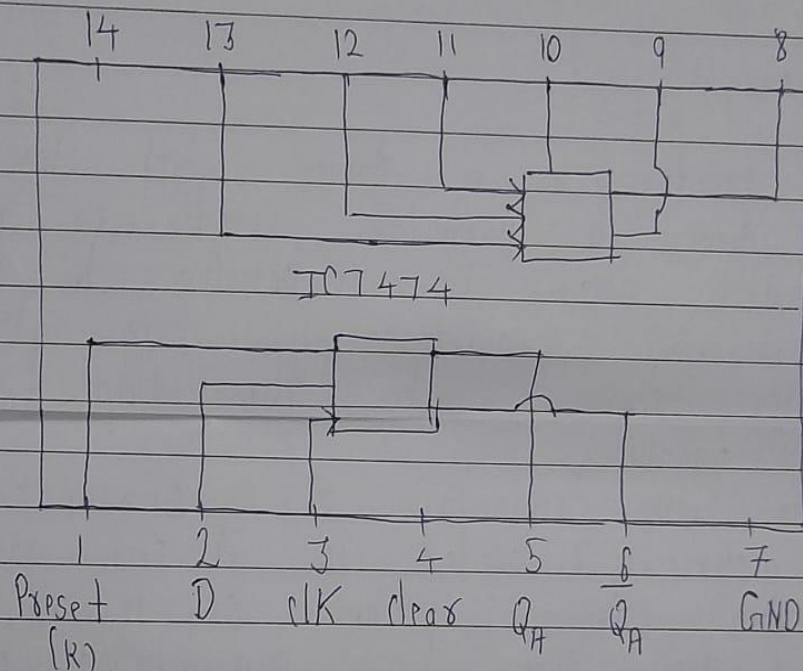 14 13 12 11 10 9 8
IC7474
1 2 3 4 5 6 7
Preset D clk clear Q_A Q̅_A GND
(R)